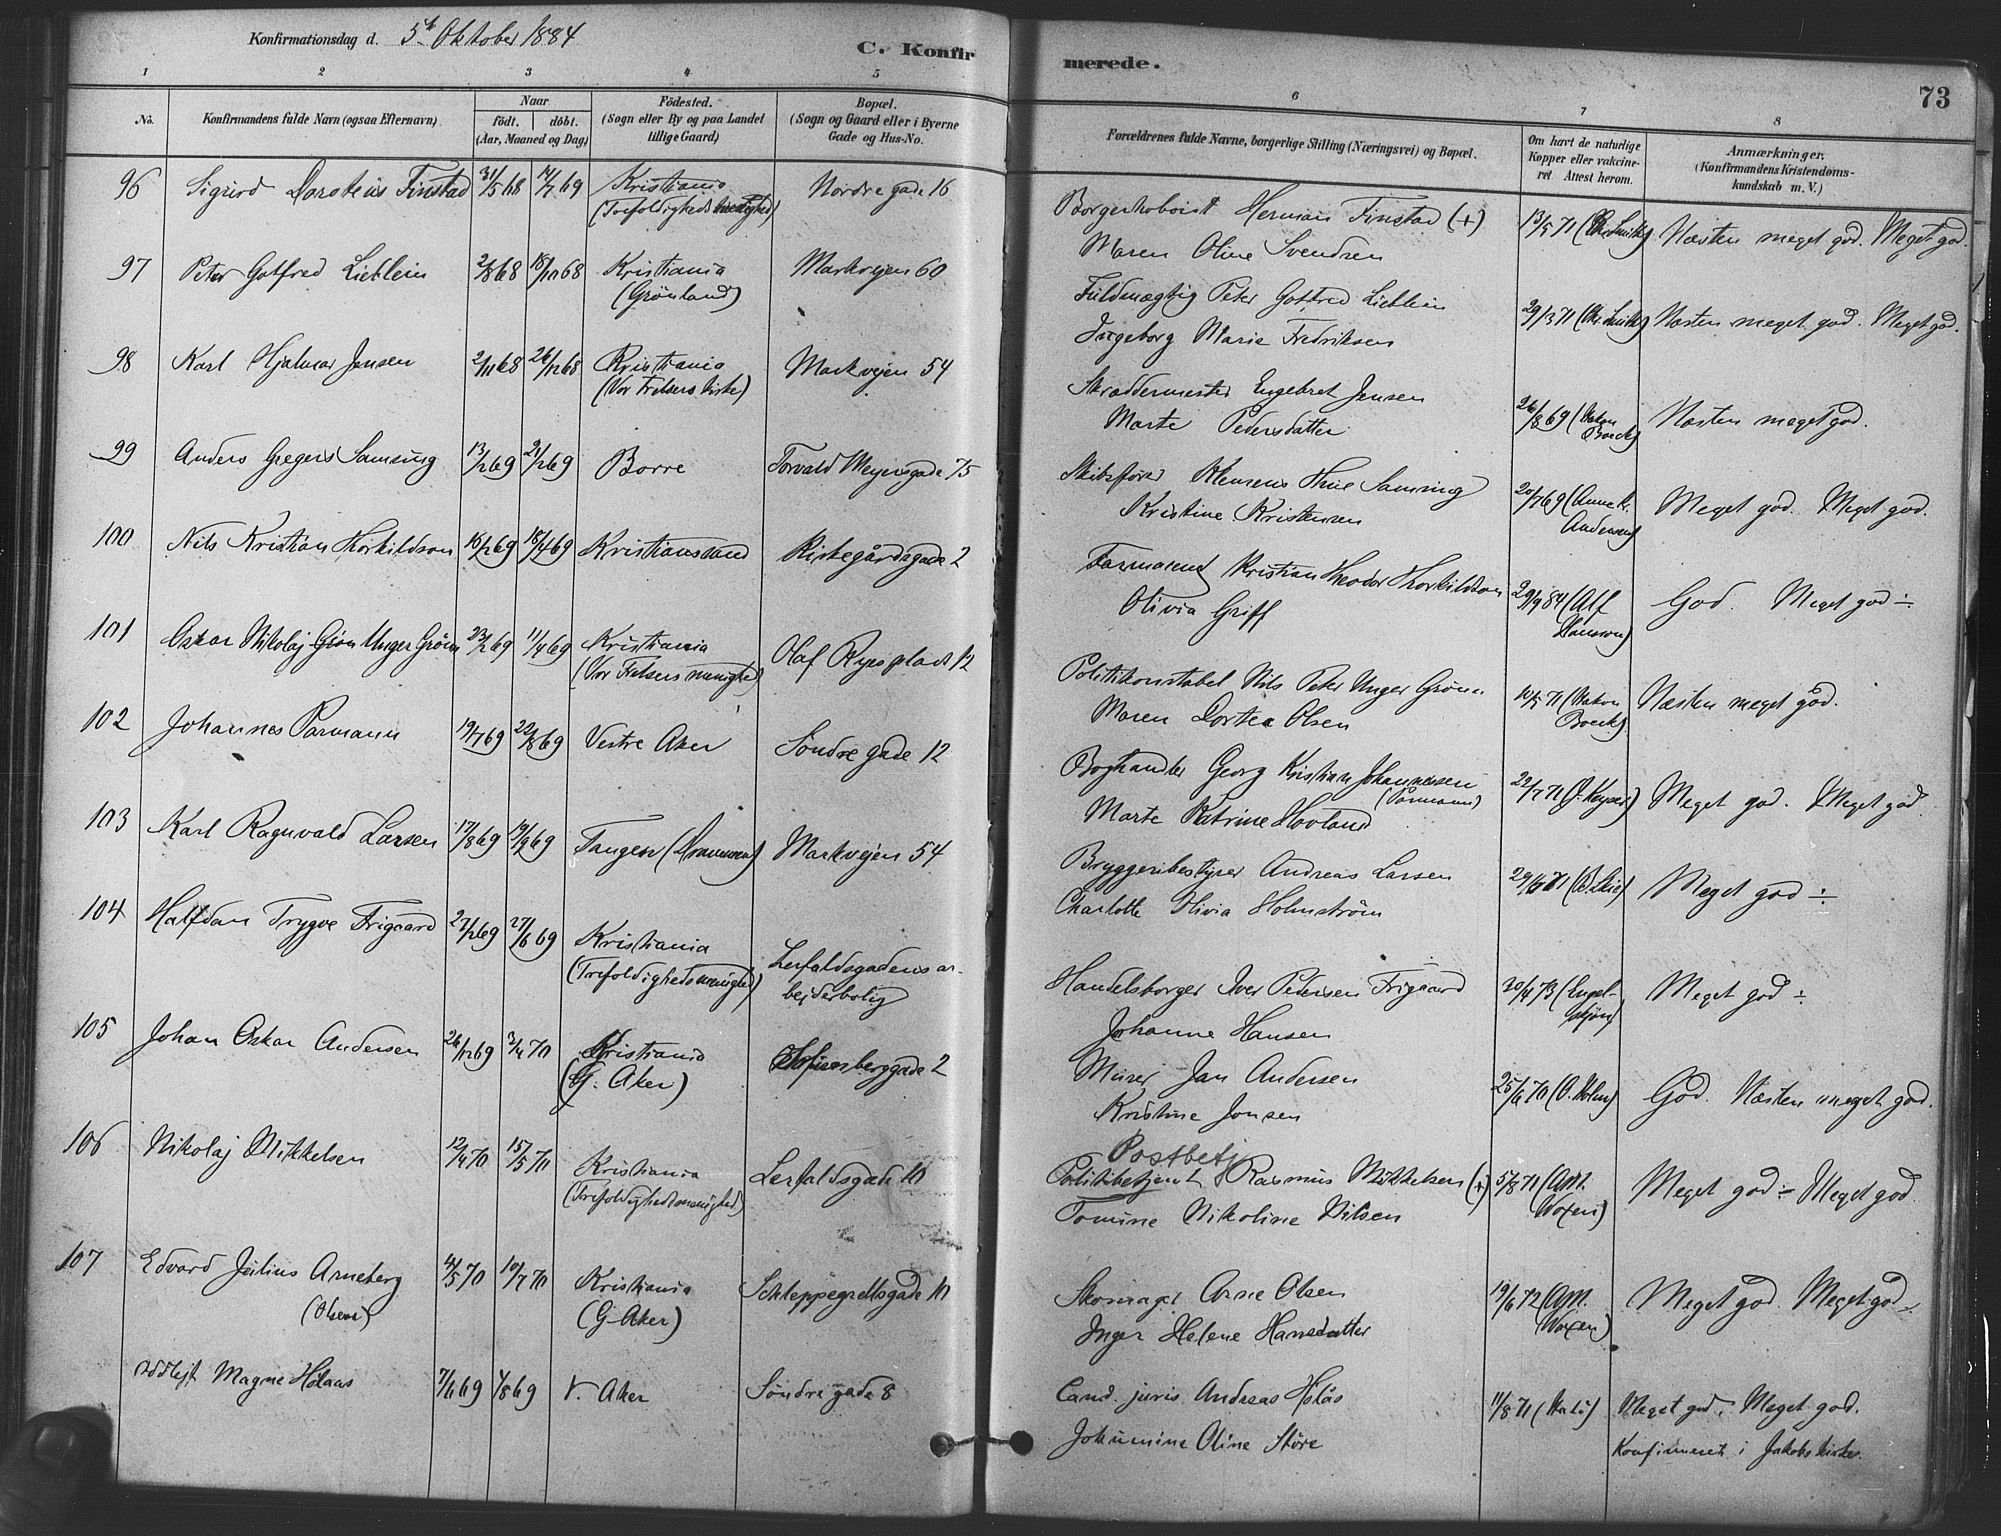 Konfirmationsdag d. 5te Oktober 1884
C. Konfirmerede.
73
1 2 3 4 5 6 7 8
No.
Konfirmandens fulde Navn (ogsaa Efternavn).
Naar
født. døbt.
(Aar, Maaned og Dag)
Fødested.
(Sogn eller By og paa Landet
tillige Gaard)
Bopæl.
(Sogn og Gaard eller i Byerne
Gade og Hus-No.
Forældrenes fulde Navne, borgerlige Stilling (Næringsvei) og Bopæl.
Om havt de naturlige
Kopper eller vakcine-
ret. Attest herom.
Anmærkninger.
(Konfirmandens Kristendoms-
kundskab m. V.)
96 Sigurd Dorotheus Finstad 31/5 68 14/7 69 Kristiania Nordre gade 16
(Trefoldigheds menighed)
Borgerhoboist Herman Finstad (+) 13/5 71 (Chr. Smith) Næsten meget god. Meget god.
Maren Oline Svendsen
97 Peter Gotfred Lieblein 2/8 68 18/10 68 Kristiania Markvejen 60
(Grønland)
Fuldmægtig Peter Gotfred Lieblein 29/3 71 (Chr. Smith) Næsten meget god. Meget god.
Ingeborg Marie Fredriksen
98 Karl Hjalmar Jensen 2/11 68 26/12 68 Kristiania Markvejen 54
(Vor Frelsers kirke)
Skræddermester Engebret Jensen 26/8 69 (Hakon Boeck) Næsten meget god.
Marte Pedersdatter
99 Anders Gregers Samsing 13/1 69 21/2 69 Borre Torvald Meyersgade 75
Skibsfører Klemens Thue Samsing 20/7 69 (Anne K. Andersen) Meget god. Meget god.
Kristine Kristensen
100 Nils Kristian Thorkildson 16/2 69 18/4 69 Kristianssand Kirkegårdsgade 2
Farmaceut Kristian Theodor Thorkildson 29/9 84 (Alf Hanson) God. Meget god ÷
Olivia Griff
101 Oskar Nikolaj Unger Grønn 23/2 69 11/4 69 Kristiania Olaf Ryes plads 12
(Vor Frelsers menighed)
Politikonstabel Nils Peter Unger Grønn 10/5 71 (Hakon Boeck) Næsten meget god.
Maren Dortea Olsen
102 Johannes Parmann 19/7 69 22/8 69 Vestre Aker Søndre gade 12
Boghandler Georg Kristian Johannesen 22/7 71 (J. Keyser) Meget god. Meget god
(Parmann)
Marte Katrine Hovland
103 Karl Ragnvald Larsen 17/8 69 19/9 69 Tangen (Drammen) Markvejen 54
Bryggeribestyrer Andreas Larsen Meget god ÷
Charlotte Olivia Holmstrøm
104 Halfdan Trygve Frigaard 27/2 69 27/6 69 Kristiania Lerfaldsgadens ar-
(Trefoldighedsmenighed) bejderbolig
Handelsborger Iver Pedersen Frigaard 20/4 73 (Engelskjøn) Meget god ÷
Johanne Hansen
105 Johan Oskar Andersen 26/12 69 3/4 70 Kristiania
(G. Aker)
Murer Jan Andersen 25/6 70 (O. Holm) God. Næsten meget god.
Kristine Jonsen
106 Nikolaj Mikkelsen 12/4 70 15/5 70 Kristiania Lerfaldsgade 10
(Trefoldighedsmenighed)
Postbetj.
Politibetjent Rasmus Mikkelsen (+) 5/8 71 (Ant. Woxen) Meget god ÷ Meget god.
Tomine Nikoline Nilsen
107 Edvard Julius Arneberg 4/5 70 10/7 70 Kristiania Schleppegrellsgade 10
(Olsen) (G. Aker)
Skomager Arne Olsen 19/6 72 (Ant. Woxen) Meget god. Meget god ÷
Inger Helene Hansdatter
Magne Hølaas 7/1 69 1/8 69 V. Aker Søndre gade 8
Cand. juris Andreas Høläs 11/8 71 Meget god. Meget god.
Johannine Oline Støre Konfirmeret i Jakobs kirke.